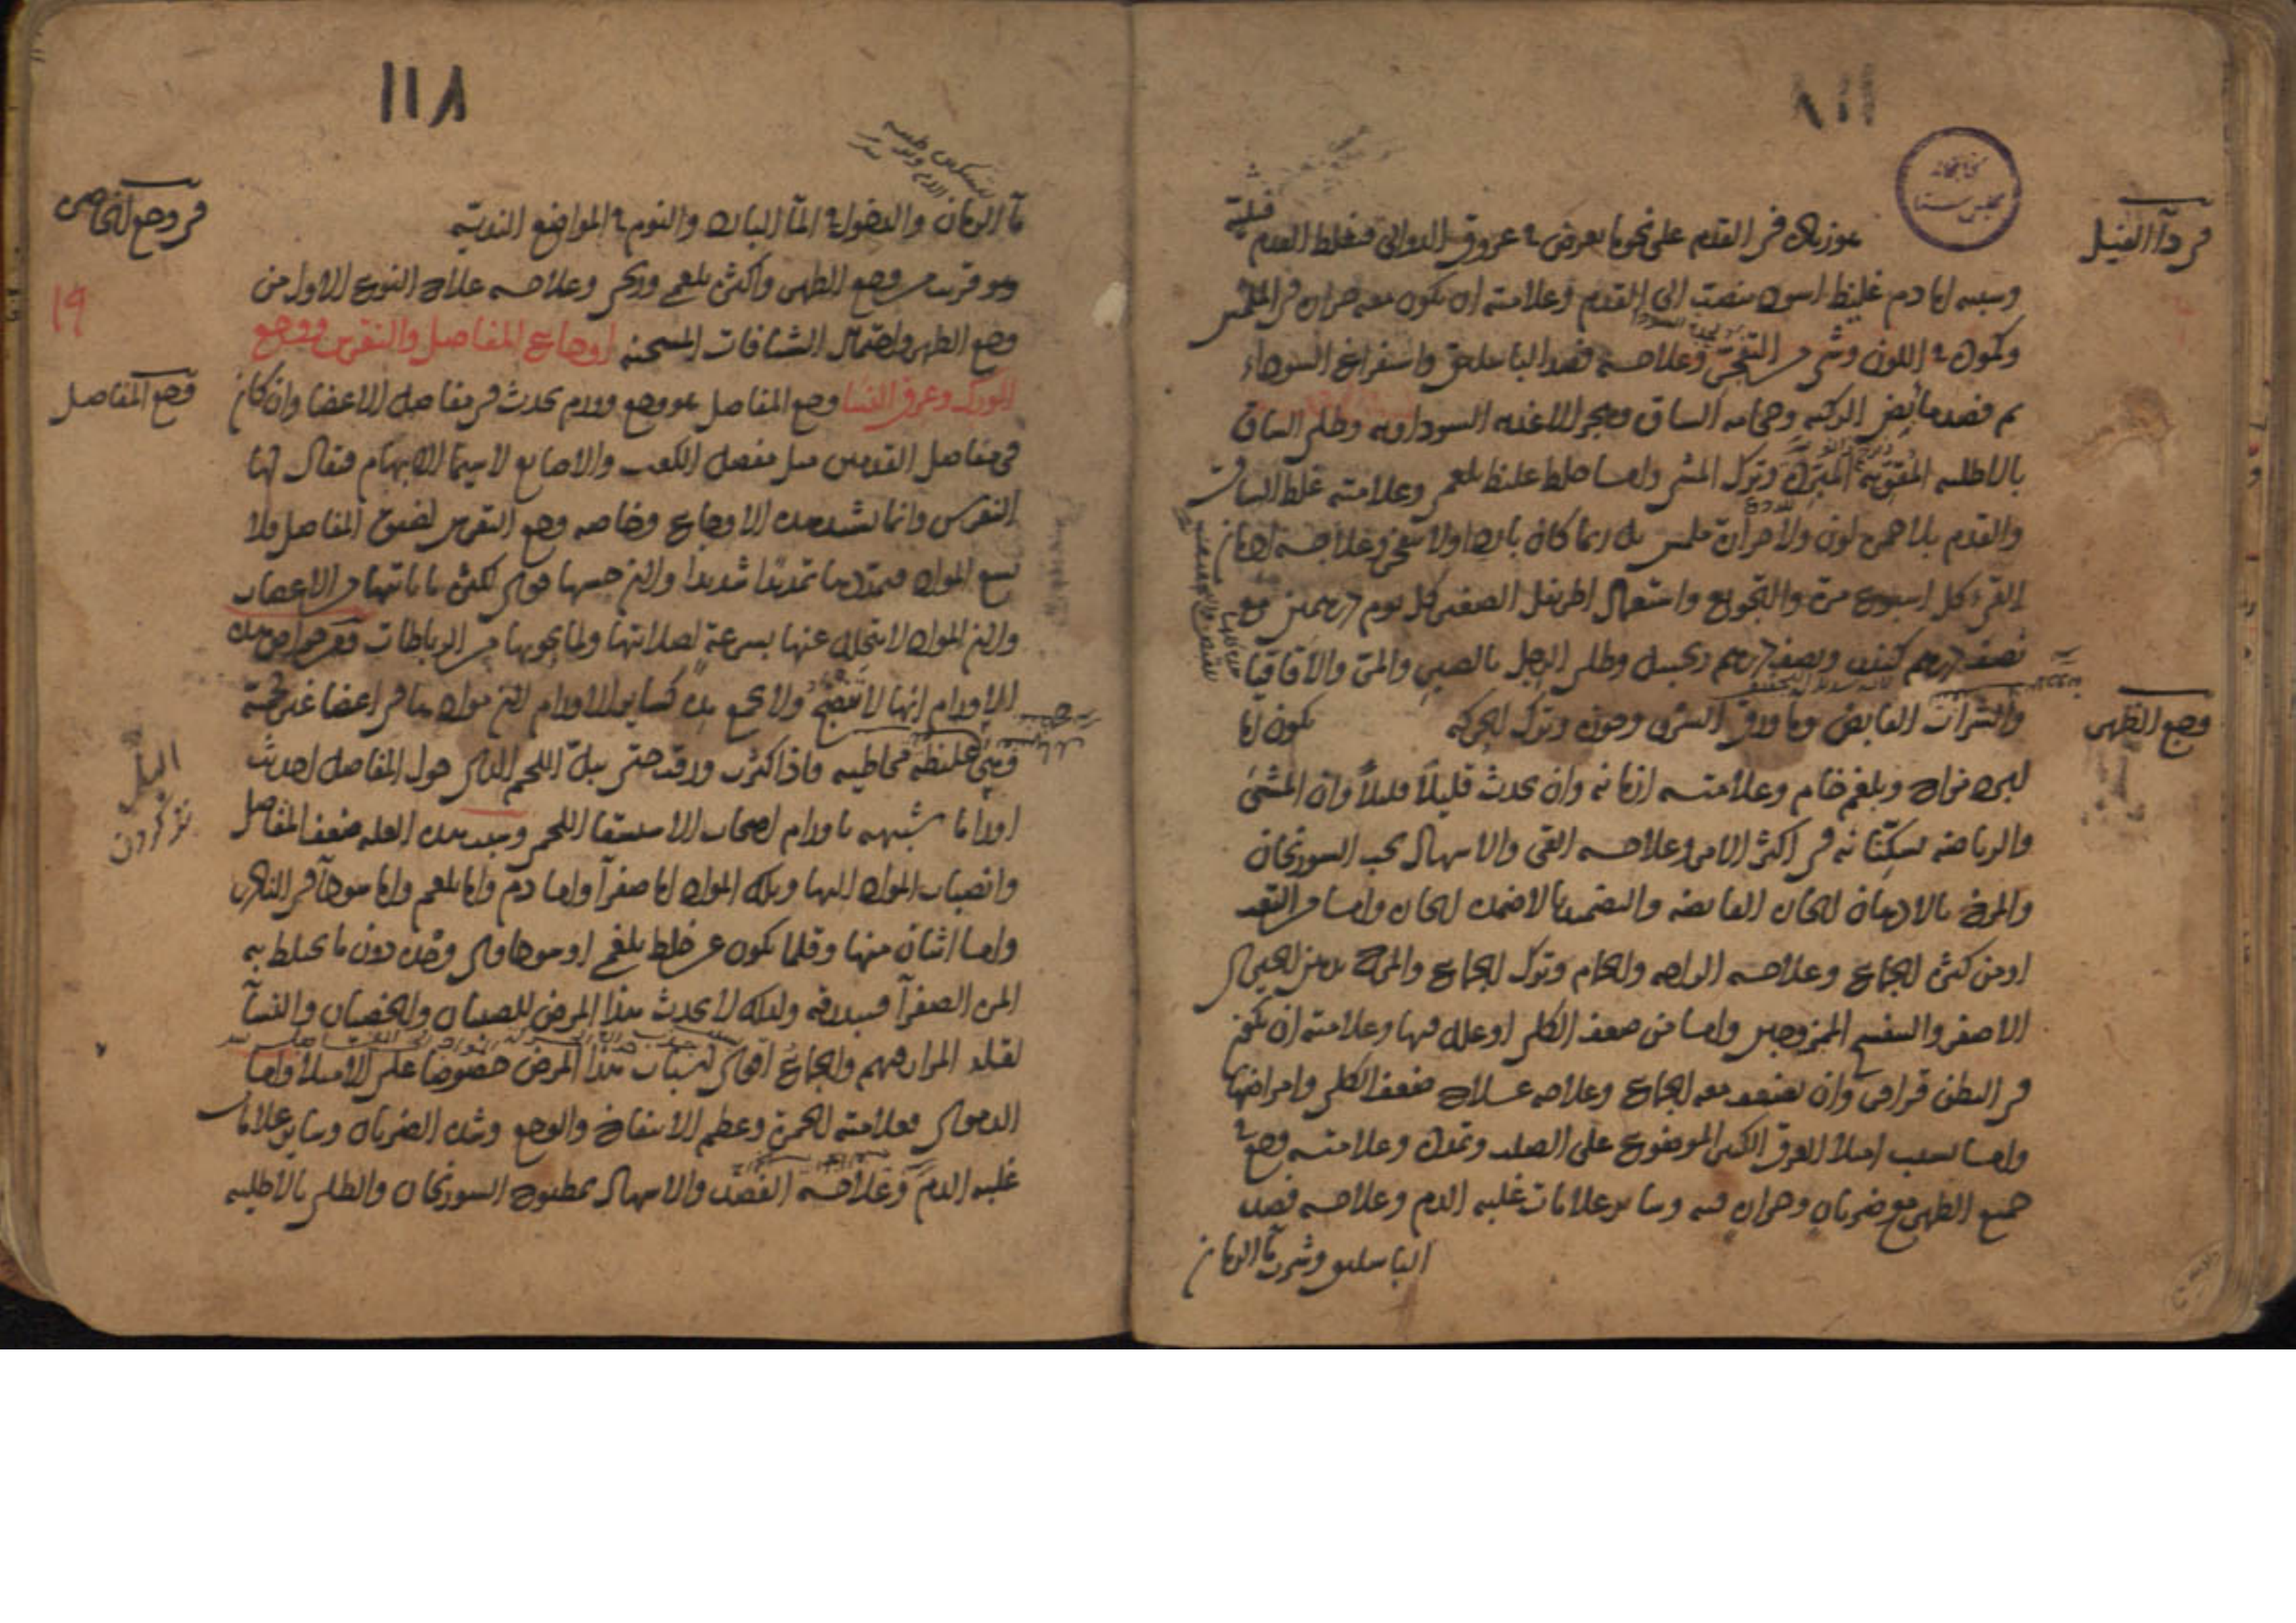 في دآ الفيل
هو زيادة في القدم على نحو ما يعرض في عروق الدوالي فيغلظ القدم
وسببه اما دم غليظ اسود ينصب الى القدم وعلامته ان يكون معه حرارة في الملمس
وكمودة في اللون وعلاجه فصد الباسليق واستفراغ السوداء
ثم فصد مابض الركبة وحجامة الساق وهجر الاغذية السوداوية وطلي الساق
بالاطلية المقوية المبردة وترك المشي واما خلط غليظ بلغمي وعلامته غلظ الساق
والقدم بلا حمرة لون ولا حرارة ملمس بل ربما كان باردا ولا يتقرح وعلاجه ادمان
القيء كل اسبوع مرة والتجويع واستعمال اطريفل الصغير كل يوم درهمين مع
نصف درهم ونصف درهم زنجبيل وطلي الرجل بالصبر والمر والاقاقيا
والشراب القابض وما ورق السرو وجوزه وترك الحركة
وجع الظهر
يكون اما
لبرد مزاج وبلغم خام وعلامته ازمانه وان يحدث قليلا قليلا وان المشي
والرياضة يسكنانه في اكثر الامر وعلاجه القي والاسهال بحب السورنجان
والمرخ بالادهان الحارة القابضة والتضميد بالاضمدة الحارة واما من التعب
او من كثرة الجماع وعلاجه الراحة والحمام وترك الجماع والمرخ بدهن الخيري
الاصفر والبنفسج الممزوجين واما من ضعف الكلى او علة فيها وعلامته ان يكون
في البطن قراقر وان يضعف معه الجماع وعلاجه علاج ضعف الكلى وامراضها
واما بسبب امتلا العرق الكبير الموضوع على الصلب وتمدده وعلامته وجع في
جميع الظهر مع ضربان وحرارة فيه وساير علامات غلبة الدم وعلاجه فصد
الباسليق وشرب مآ الرمان
١١٨
في وجع الخاصرة
مآ الرمان والدخول في المآ البارد والنوم في المواضع الندية
وهو قريب من وجع الظهر واكثره بلغمي وريحي وعلاجه علاج النوع الاول من
وجع الظهر واحتمال الشيافات المسخنة اوجاع المفاصل والنقرس ووجع
١٩
الورك وعرق النسا وجع المفاصل هو وجع وورم يحدث في مفاصل الاعضا وان كان
وجع المفاصل
في مفاصل القدمين مثل مفصل الكعب والاصابع لا سيما الابهام فيقال لها
النقرس وانما تشتد هذه الاوجاع وخاصة وجع النقرس لضيق المفاصل ولا
تسع المواد فيمددها تمديدا شديدا ولان حسها قوي لكثرة ما ياتيها من الاعصاب
ولان المواد لا تتحلل عنها بسرعة لصلابتها ولما يحويها من الرباطات ومن خواص هذه
الاورام انها لا تنضج ولا تجمع مدة كساير الاورام لان موادها في اعضا غير لحمية
وهي غليظة مخاطية فاذا كثرت ورقت حتى يبل اللحم الذي حول المفاصل احدثت
البل
تر كردن
اوراما شبيهة باورام اصحاب الاستسقا اللحمي وسبب هذه العلة ضعف المفاصل
وانصباب المواد اليها وتلك المواد اما صفرآ واما دم واما بلغم واما سودآ في النادر
واما اثنان منها وقلما يكون عن خلط بلغمي او سوداوي وحده دون ما يخلط به
المرة الصفرآ فيبذرقه ولذلك لا يحدث هذا المرض للصبيان والخصيان والنسآ
لقلة المرار فيهم والجماع اقوى اسباب هذا المرض خصوصا على الامتلا واما
الدموي فعلامته الحمرة وعظم الانتفاخ والوجع وشدة الضربان وساير علامات
غلبة الدم وعلاجه الفصد والاسهال بمطبوخ السورنجان والطلي بالاطلية